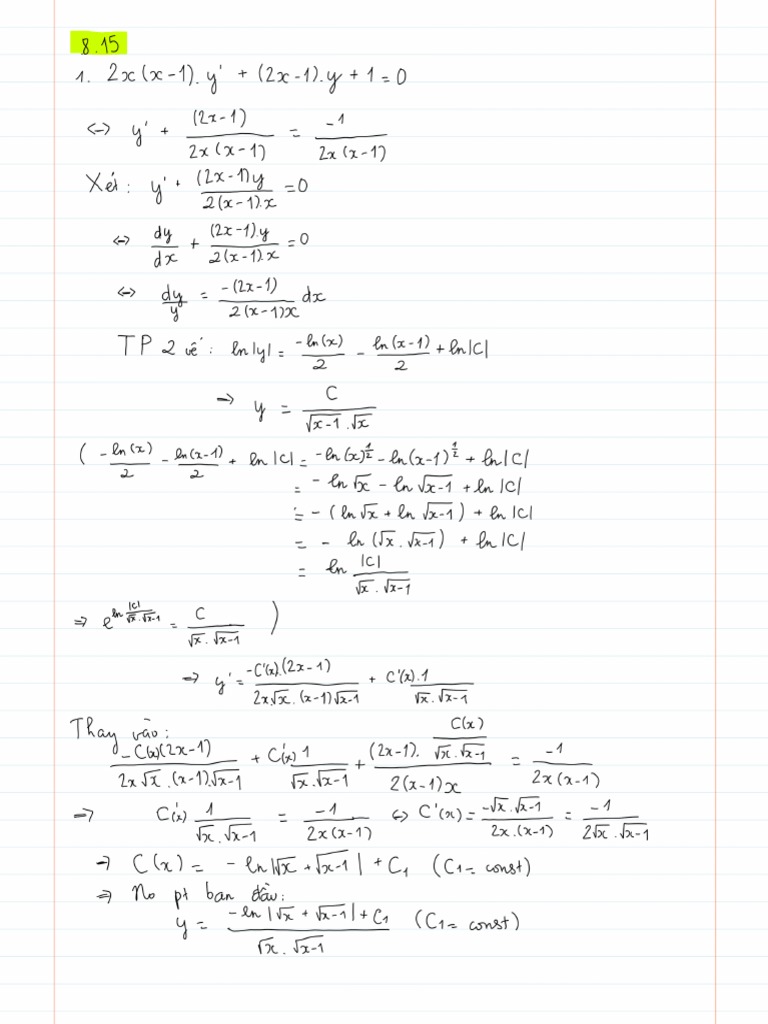 8.15
1. 2x(x-1).y' + (2x-1).y + 1 = 0
<-> y' + (2x-1)/(2x(x-1)) = -1/(2x(x-1))
Xét: y' + (2x-1)y/(2(x-1).x) = 0
<-> dy/dx + (2x-1).y/(2(x-1).x) = 0
<-> dy/y = -(2x-1)/(2(x-1)x) dx
TP 2 vế: ln|y| = -ln(x)/2 - ln(x-1)/2 + ln|C|
→ y = C/(√x-1 . √x)
( -ln(x)/2 - ln(x-1)/2 + ln|C| = -ln(x)^(1/2) - ln(x-1)^(1/2) + ln|C|
= - ln√x - ln√x-1 + ln|C|
= - (ln√x + ln√x-1) + ln|C|
= - ln(√x . √x-1) + ln|C|
= ln |C|/(√x . √x-1)
=> e^(ln |C|/(√x . √x-1)) = C/(√x . √x-1) )
→ y' = -C'(x).(2x-1)/(2x√x . (x-1)√x-1) + C'(x).1/(√x . √x-1)
Thay vào:
-C(x)(2x-1)/(2x√x . (x-1).√x-1) + C'(x) 1/(√x . √x-1) + (2x-1). C(x)/(√x . √x-1)/(2(x-1)x) = -1/(2x(x-1))
=> C'(x) 1/(√x . √x-1) = -1/(2x(x-1)) <-> C'(x) = -√x . √x-1/(2x.(x-1)) = -1/(2√x . √x-1)
→ C(x) = - ln|√x + √x-1| + C1 (C1 = const)
=> No pt ban đầu:
y = (-ln|√x + √x-1| + C1)/(√x . √x-1) (C1 = const)